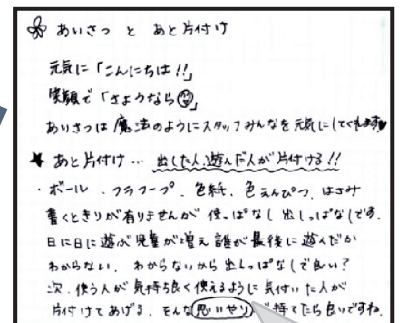 あいさつ と あと片付け
元気に「こんにちは!!」
笑顔で「さようなら」
あいさつは 魔法のようにスタッフみんなを元気にしてくれます♥
★ あと片付け… 出した人、遊んだ人が片付ける!!
・ボール・フラフープ、色紙、色えんぴつ、はさみ
書くときりが有りませんが 使っぱなし 出しっぱなしです。
日に日に遊ぶ児童が増え 誰が最後に遊んだか
わからない、わからないから出しっぱなしで良い?
次、使う人が気持ち良く使えるように 気付いた人が
片付けてあげる。そんな 思いやり が持てたら良いですね。